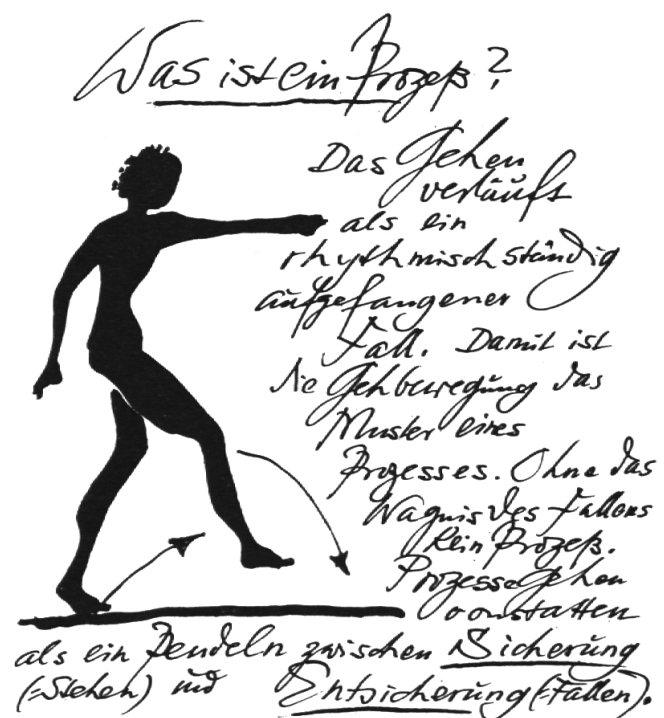 Was ist ein Prozeß?
Das Gehen
verläuft
als ein
rhythmisch ständig
aufgefangener
Fall. Damit ist
die Gehbewegung das
Muster eines
Prozesses. Ohne das
Wagnis des Fallens
kein Prozeß.
Prozesse gehen
vonstatten
als ein Pendeln zwischen Sicherung
(=Stehen) und Entsicherung (=Fallen).